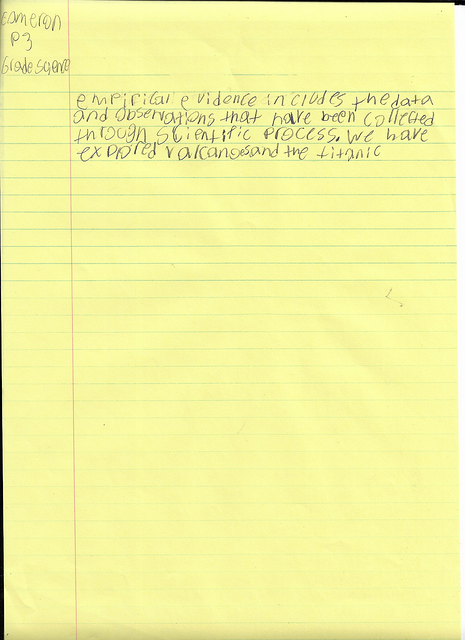 cameron
P3
Grade science
empirical evidence includes the data
and observations that have been collected
through scientific process. we have
explored valcanoes and the titanic